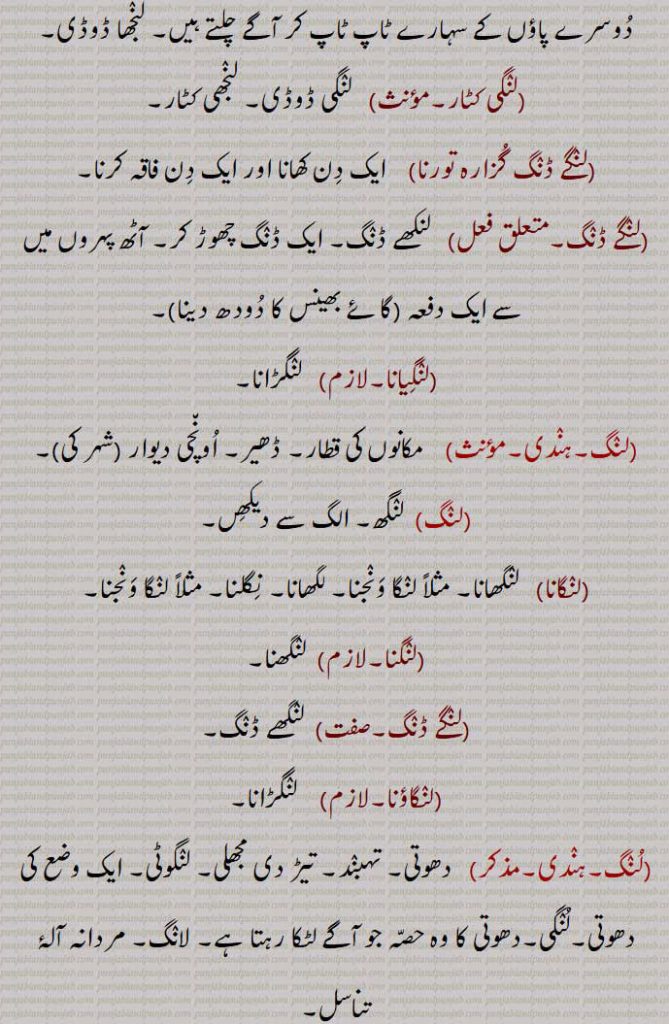 دُوسرے پاؤں کے سہارے ٹاپ ٹاپ کر آگے چلتے ہیں۔ لنْجھا ڈوڈی۔
(لنْگی کٹار۔مؤنث) لنْگی ڈوڈی۔ لنْجھی کٹار۔
(لنْگے ڈنْگ گُزارہ تورنا) ایک دِن کھانا اور ایک دِن فاقہ کرنا۔
(لنْگے ڈنْگ۔متعلق فعل) لنکھے ڈنْگ۔ ایک ڈنْگ چھوڑ کر۔ آٹھ پہروں میں
سے ایک دفعہ (گائے بھینس کا دُودھ دینا)۔
(لنْگِیانا۔لازم) لنْگڑانا۔
(لنْگ۔ہنْدی۔مؤنث) مکانوں کی قطار۔ ڈھیر۔ اُونْچی دیوار (شہر کی)۔
(لنْگ) لنْگھ۔ الگ سے دیکھِں۔
(لنْگانا) لنْگھانا۔ مثلاً لنْگا وَنْجنا۔ لگھانا۔ نِگلنا۔ مثلاً لنْگا وَنْجنا۔
(لنْگنا۔لازم) لنْگھنا۔
(لنْگے ڈنْگ۔صفت) لنْگھے ڈنْگ۔
(لنْگاؤنا۔لازم) لنْگڑانا۔
(لُنْگ۔ہنْدی۔مذکر) دھوتی۔ تہبنْد۔ تیڑ دی مجھلی۔ لنْگوٹی۔ ایک وضع کی
دھوتی۔لُنْگی۔دھوتی کا وہ حصّہ جو آگے لٹکا رہتا ہے۔ لانْگ۔ مردانہ آلۂ
تناسل۔